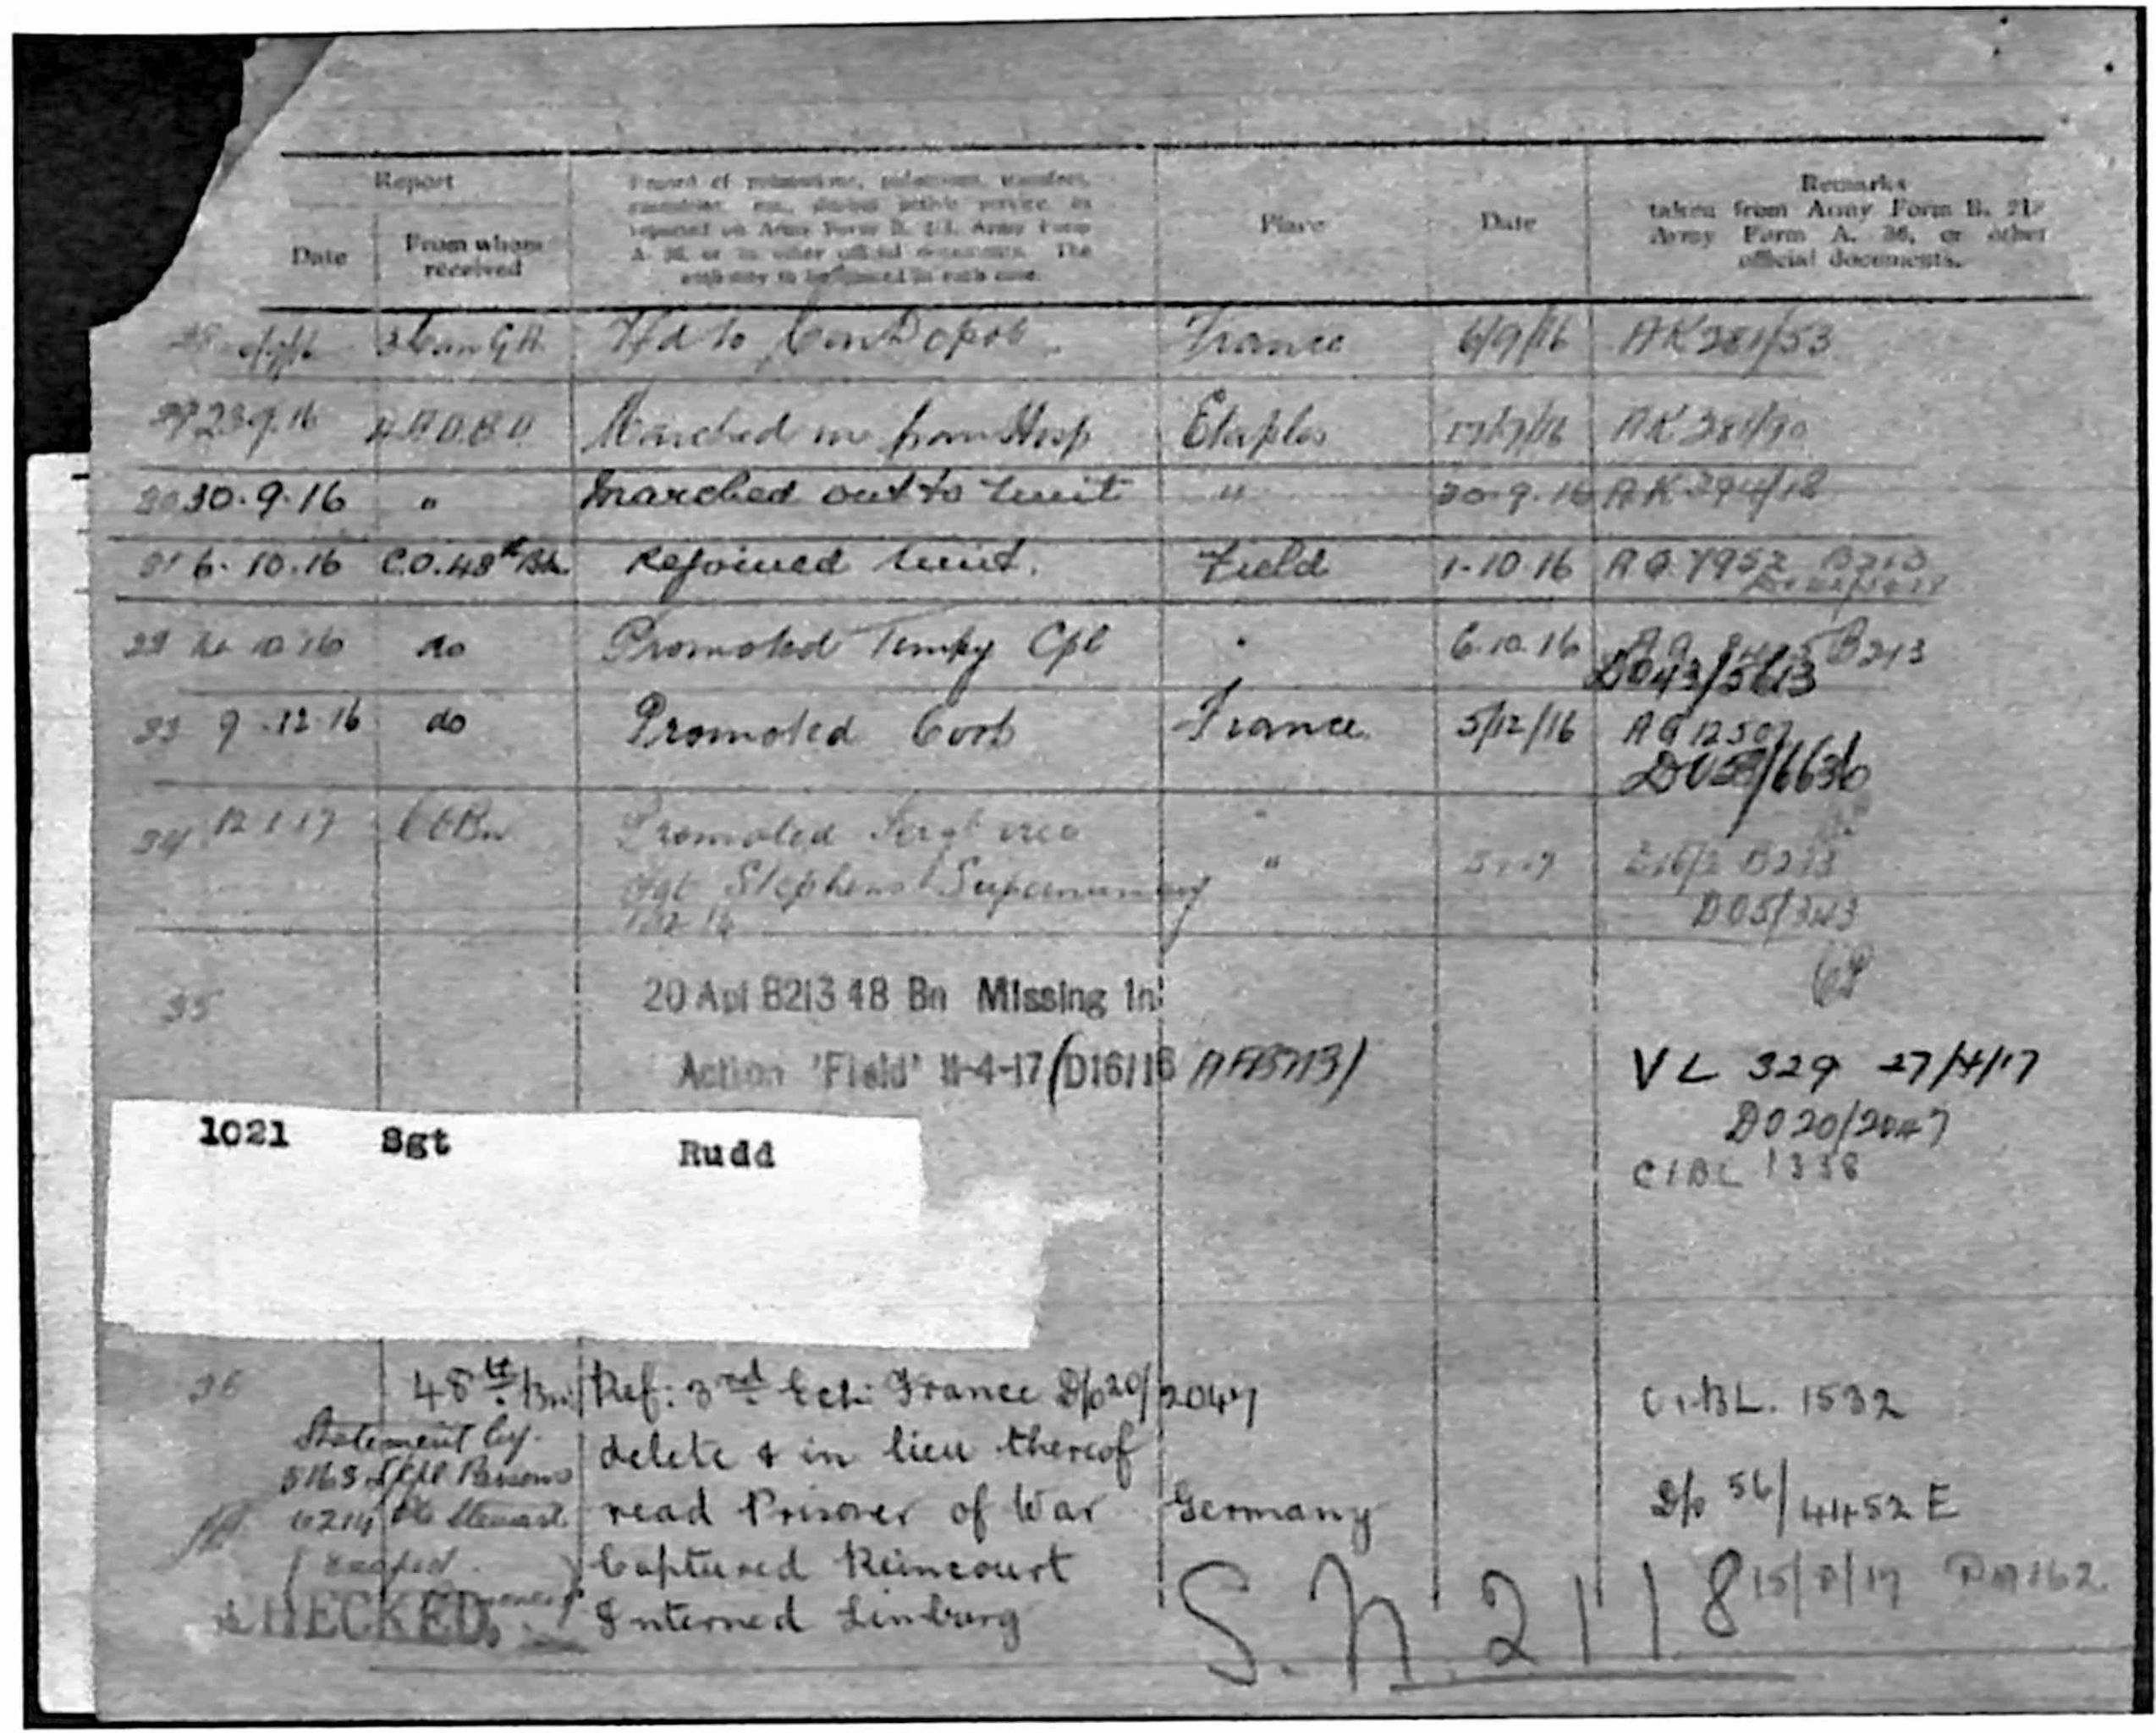 Report
Date
From whom received
Record of promotions, reductions, transfers, casualties, etc., during active service, as reported on Army Form B. 213, Army Form A. 36, or in other official documents. The authority to be quoted in each case.
Place
Date
Remarks
taken from Army Form B. 213
Army Form A. 36, or other
official documents.
3 Can G H. Tfd to Con Depot France 6/9/16 AK 281/53
23.9.16 Marched in from Hosp Etaples AK 281/90
30.9.16 " Marched out to Unit " 30.9.16 AK 294/18
31 6.10.16 C.O. 48th Bn. Rejoined Unit. Field 1.10.16 AQ 7952 B213
10 16 do Promoted Tempy Cpl " 6.10.16 B213
DO43/5613
33 9.12.16 do Promoted Corp France 5/12/16 AQ 12507
6636
34 12.1.17 CO Bn Promoted Sergt vice "
Sgt Stephens Supernumary " B213
DO5/343
35 20 Apl B213 48 Bn Missing in
Action 'Field' 11-4-17 (D16/16 AFB213)
VL 329 27/4/17
DO 20/2047
CIBL 1338
1021 Sgt Rudd
36 48th Bn Ref: 3rd Ech: France D/o 20/2047 C.I.B.L. 1532
Statement by delete & in lieu thereof
Cpl Parsons
Stewart read Prisoner of War Germany D/o 56/4452 E
Escaped Captured Reincourt 15/8/17
CHECKED. Interned Limburg
S.N. 2118